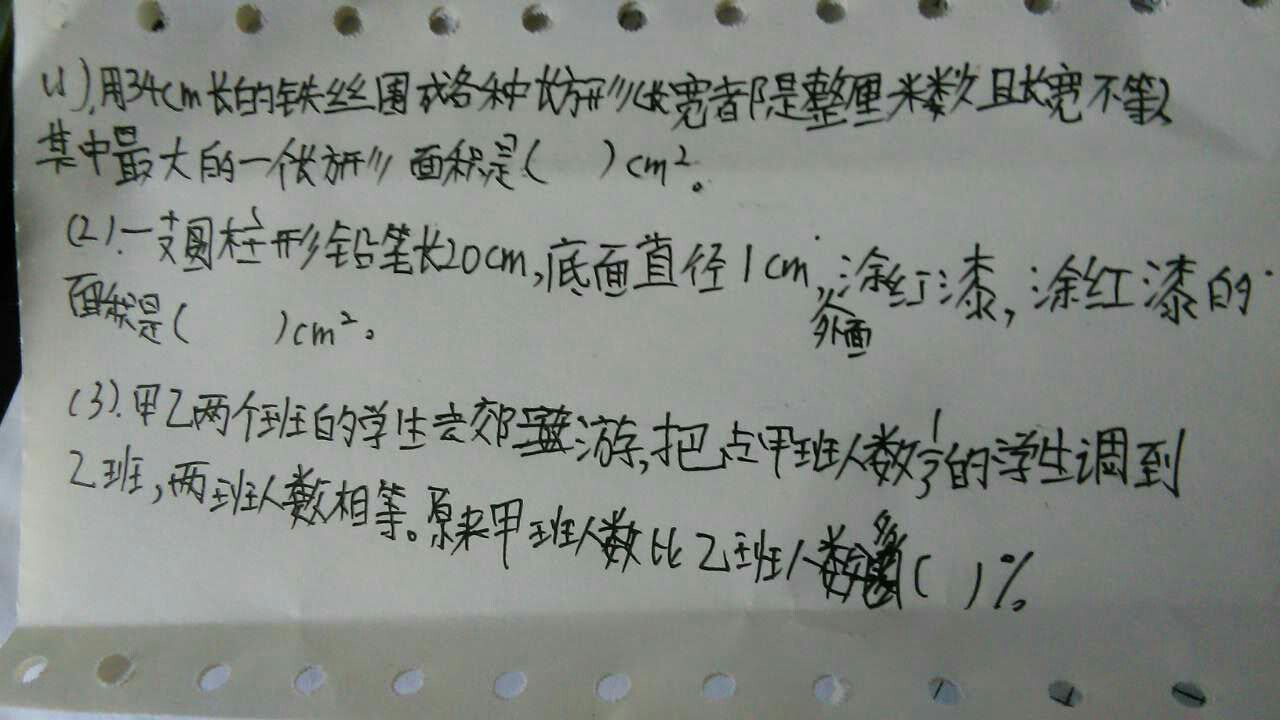 (1).用34cm长的铁丝围成各种长方形(长宽都是整厘米数且长宽不等)
其中最大的一个长方形面积是( )cm²。
(2).一支圆柱形铅笔长20cm,底面直径1cm,外面涂红漆,涂红漆的
面积是( )cm²。
(3).甲乙两个班的学生去郊游,把占甲班人数1/3的学生调到
乙班,两班人数相等。原来甲班人数比乙班人数多( )%